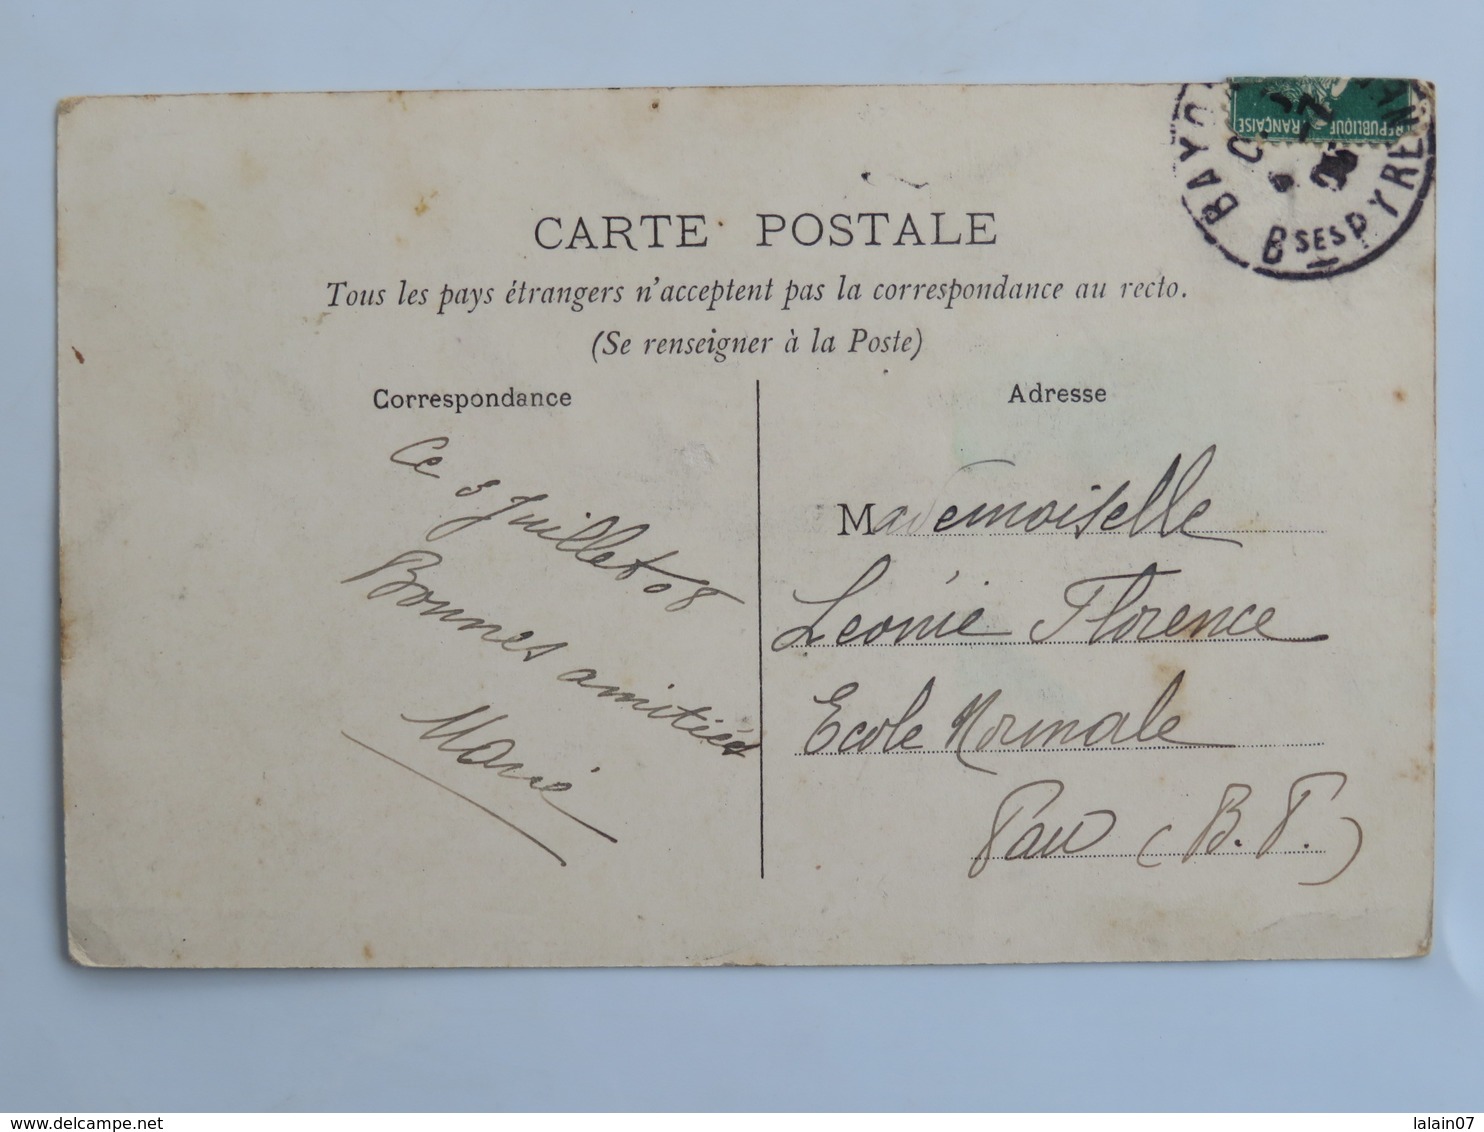 RÉPUBLIQUE FRANÇAISE
BAYO
BSES PYREN
CARTE POSTALE
Tous les pays étrangers n'acceptent pas la correspondance au recto.
(Se renseigner à la Poste)
Correspondance
Ce 3 Juillet 08
Bonnes amitiés
Marie
Adresse
Mademoiselle
Léonie Florence
Ecole Normale
Pau (B.P.)
delcampe.net
lalain07